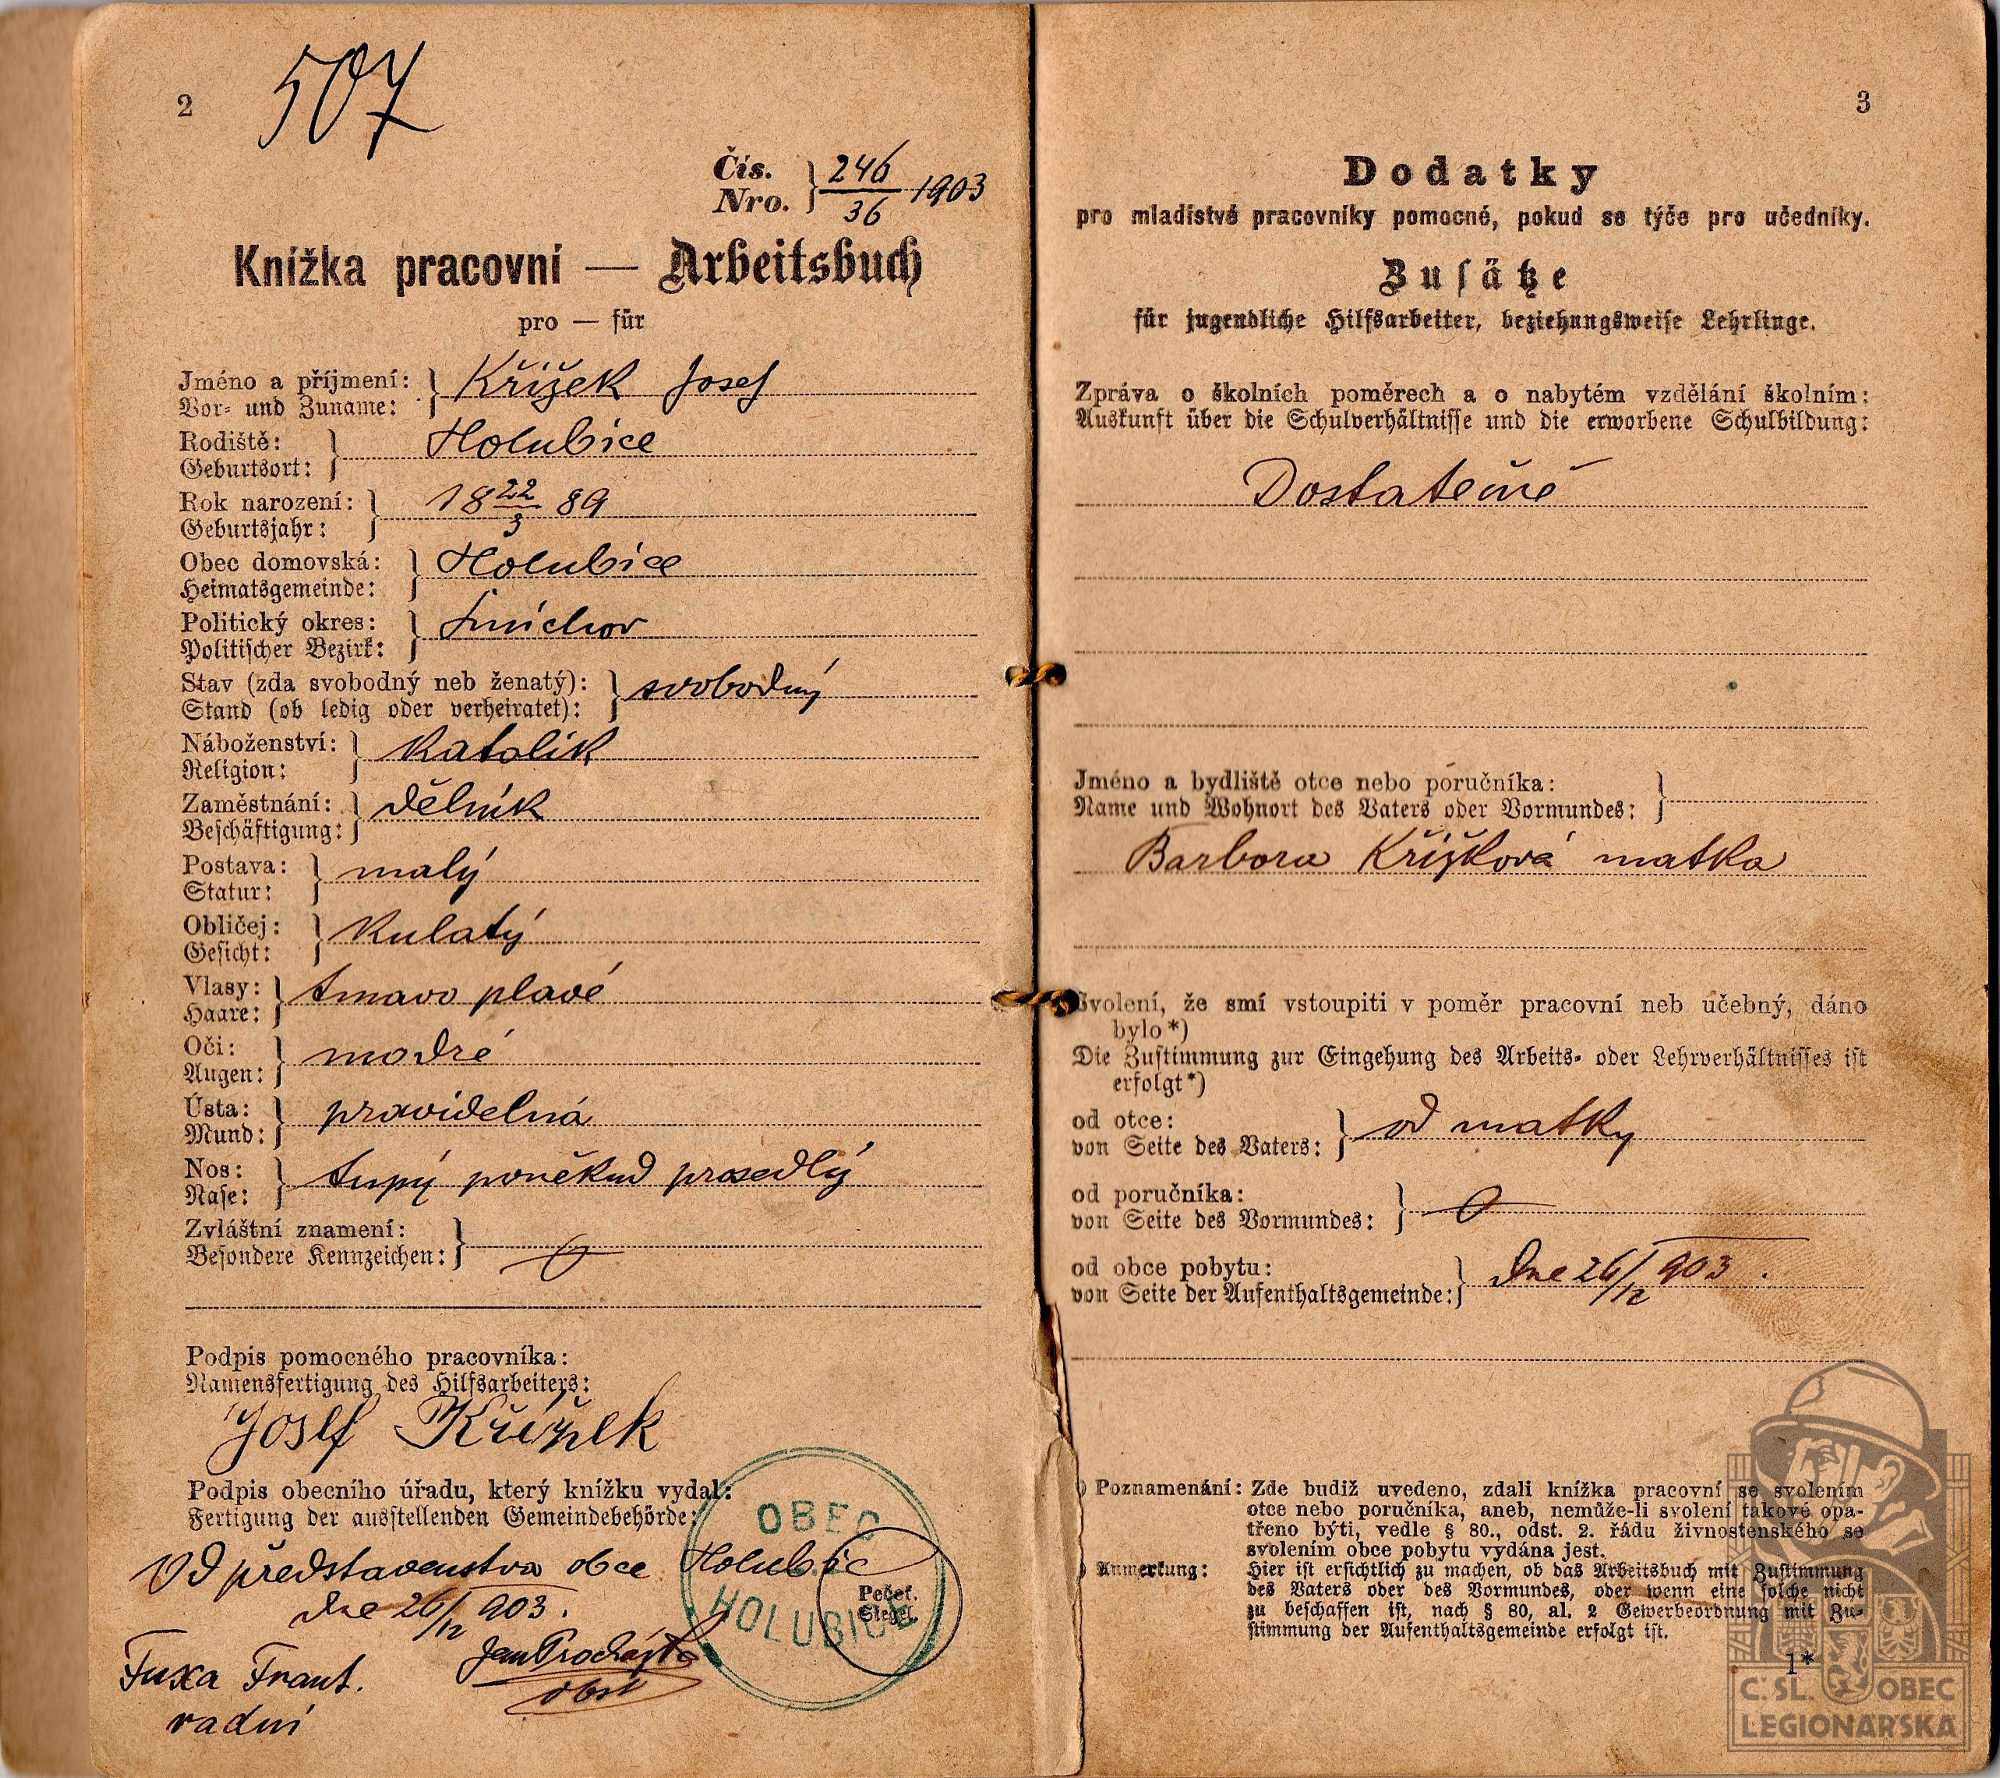 2
507
Čís.
Nro. } 246/36 1903
Knížka pracovní — Arbeitsbuch
pro — für
Jméno a příjmení: } Křížek Josef
Vor- und Zuname:
Rodiště: } Holubice
Geburtsort:
Rok narození: } 18 22/3 89
Geburtsjahr:
Obec domovská: } Holubice
Heimatsgemeinde:
Politický okres: } Smíchov
Politischer Bezirk:
Stav (zda svobodný neb ženatý): } svobodný
Stand (ob ledig oder verheiratet):
Náboženství: } Katolík
Religion:
Zaměstnání: } dělník
Beschäftigung:
Postava: } malý
Statur:
Obličej: } Kulatý
Gesicht:
Vlasy: } tmavo plavé
Haare:
Oči: } modré
Augen:
Ústa: } pravidelná
Mund:
Nos: } tupý poněkud prosedlý
Nase:
Zvláštní znamení: } 0
Besondere Kennzeichen:
Podpis pomocného pracovníka:
Namensfertigung des Hilfsarbeiters:
Josef Křížek
Podpis obecního úřadu, který knížku vydal:
Fertigung der ausstellenden Gemeindebehörde:
Od představenstva obce Holubic
dne 26/12 903.
Fuxa Frant.
radní
Jan Procházka
obst
OBEC
HOLUBICE
Pečeť.
Siegel.
3
Dodatky
pro mladistvé pracovníky pomocné, pokud se týče pro učedníky.
Zusätze
für jugendliche Hilfsarbeiter, beziehungsweise Lehrlinge.
Zpráva o školních poměrech a o nabytém vzdělání školním:
Auskunft über die Schulverhältnisse und die erworbene Schulbildung:
Dostatečné
Jméno a bydliště otce nebo poručníka: }
Name und Wohnort des Vaters oder Vormundes:
Barbora Křížková matka
Svolení, že smí vstoupiti v poměr pracovní neb učebný, dáno
bylo*)
Die Zustimmung zur Eingehung des Arbeits- oder Lehrverhältnisses ist
erfolgt*)
od otce: } od matky
von Seite des Vaters:
od poručníka: } 0
von Seite des Vormundes:
od obce pobytu: } dne 26/12 903.
von Seite der Aufenthaltsgemeinde:
) Poznamenání: Zde budiž uvedeno, zdali knížka pracovní se svolením
otce nebo poručníka, aneb, nemůže-li svolení takové opa-
třeno býti, vedle § 80., odst. 2. řádu živnostenského se
svolením obce pobytu vydána jest.
) Anmerkung: Hier ist ersichtlich zu machen, ob das Arbeitsbuch mit Zustimmung
des Vaters oder des Vormundes, oder wenn eine solche nicht
zu beschaffen ist, nach § 80, al. 2 Gewerbeordnung mit Zu-
stimmung der Aufenthaltsgemeinde erfolgt ist.
1*
Č. SL. OBEC
LEGIONÁŘSKÁ